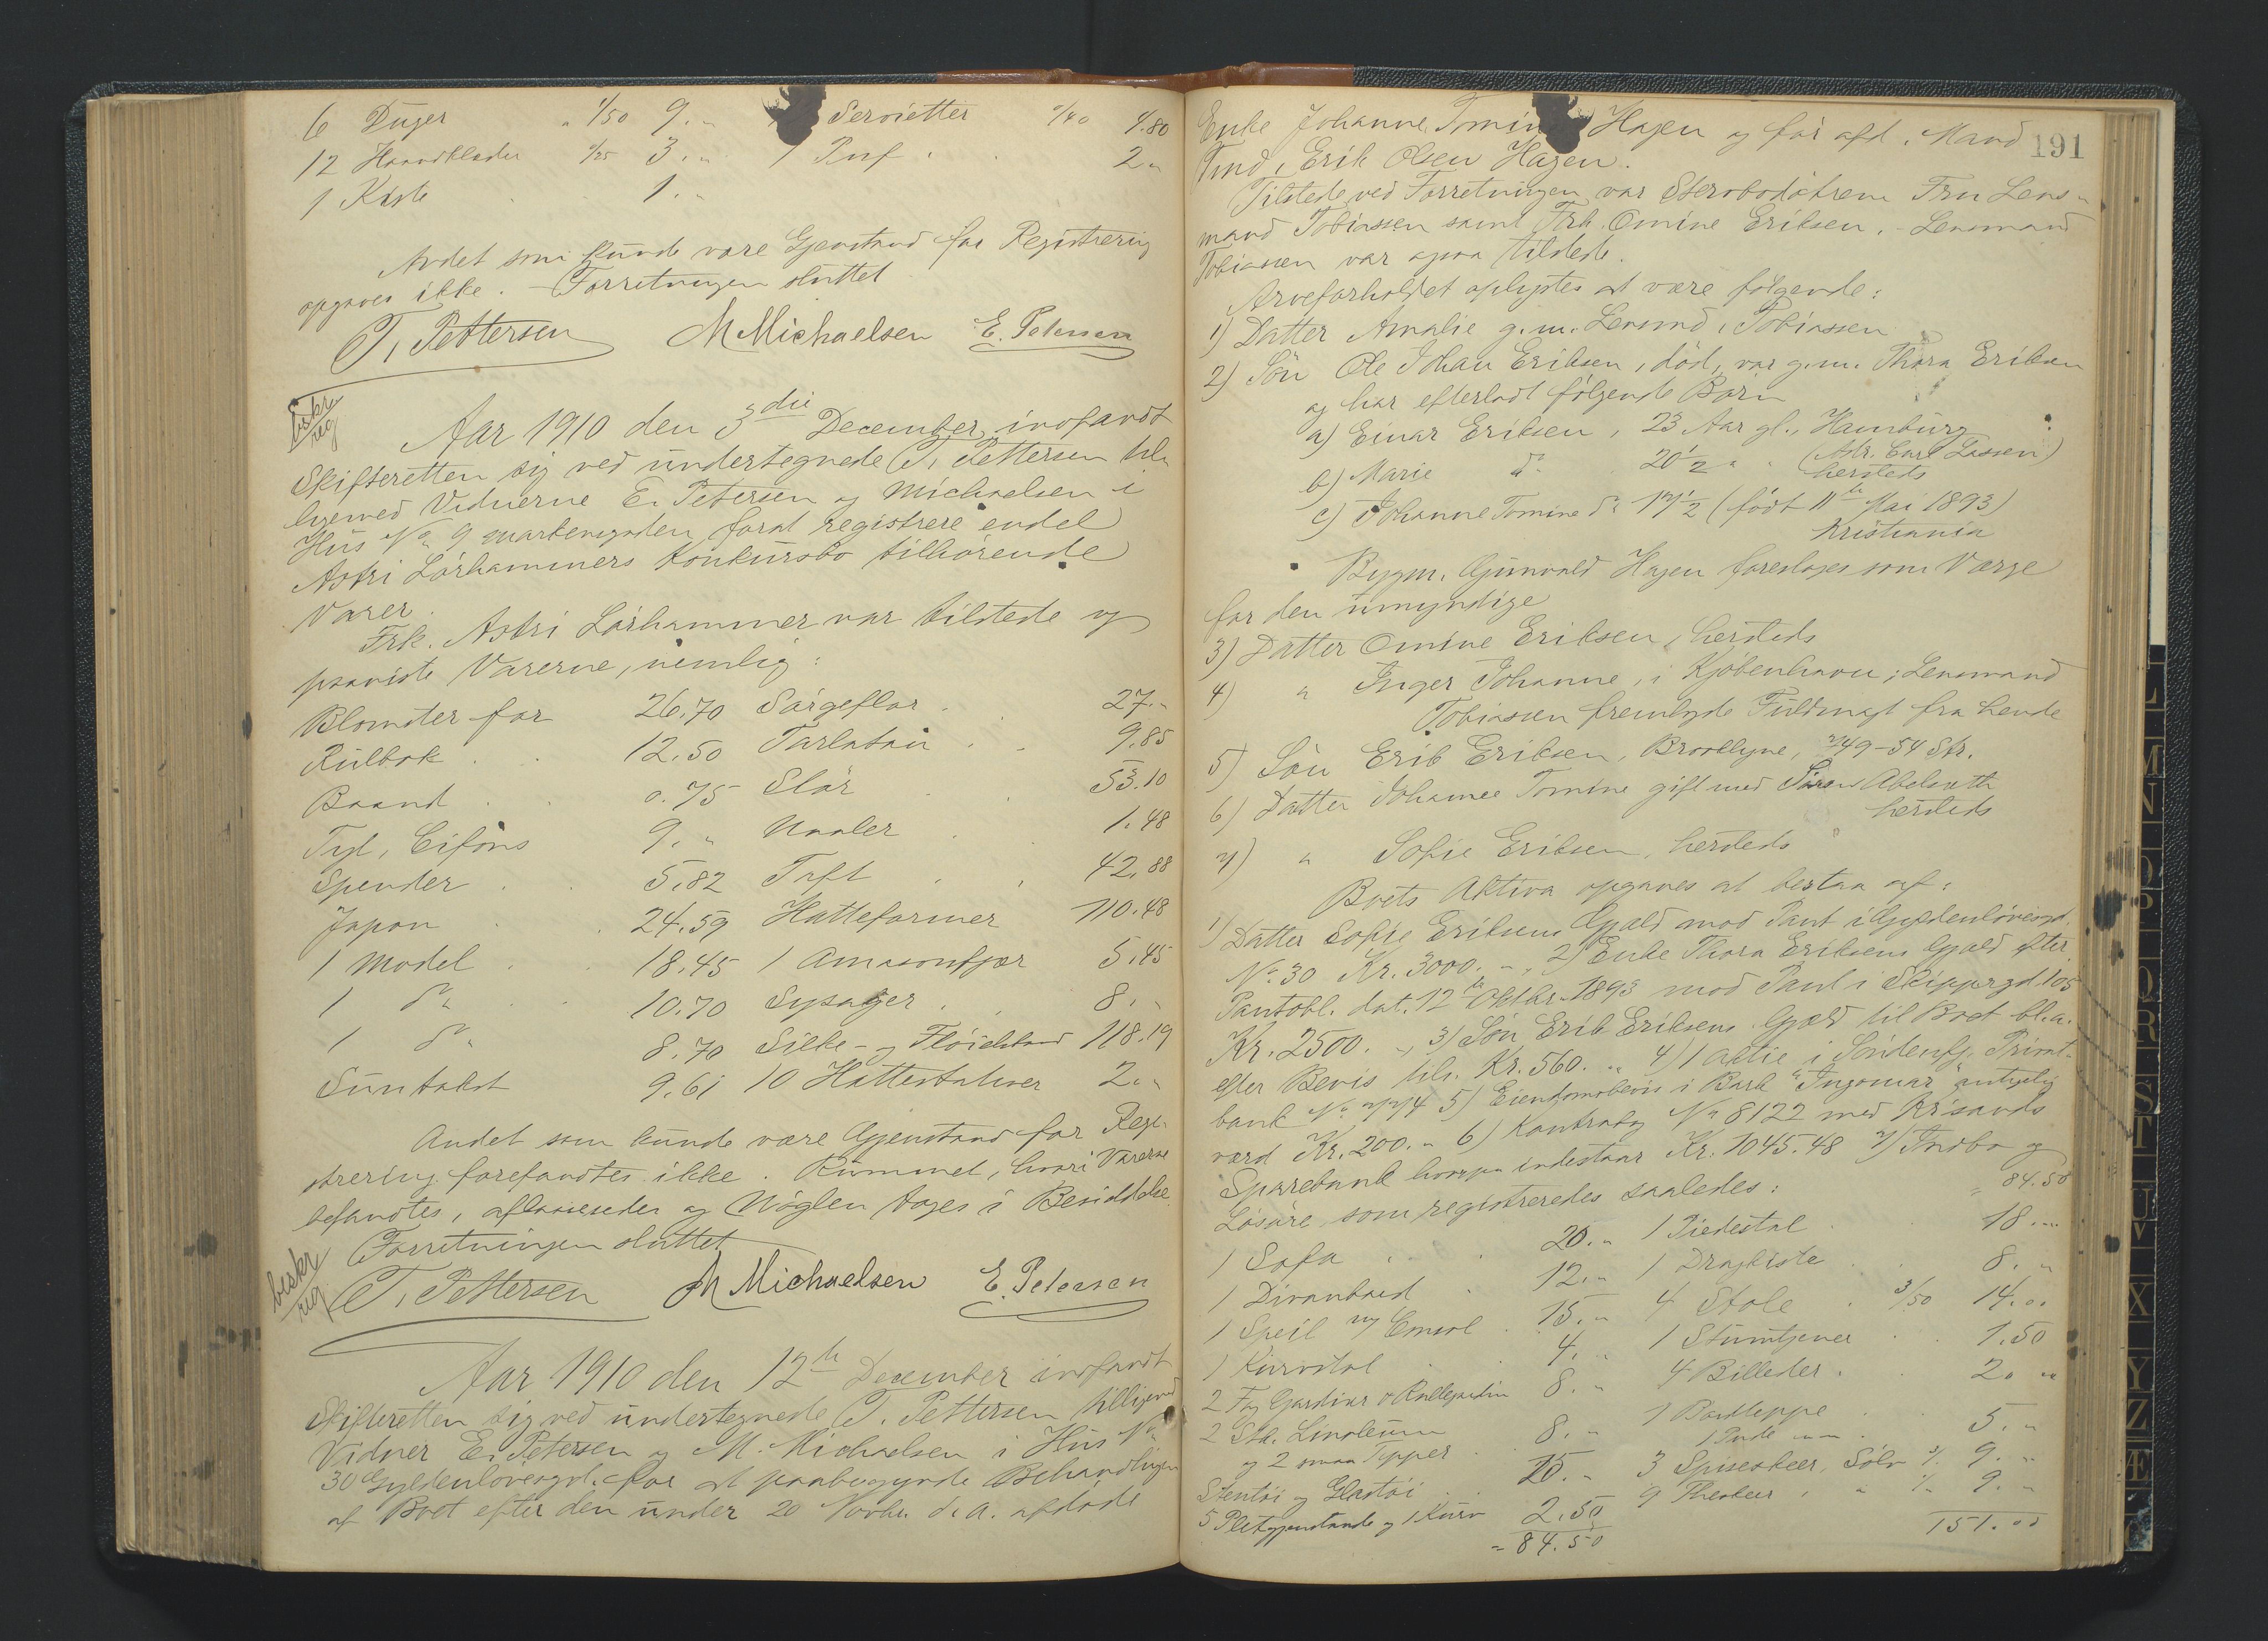 6 Duger " 1/50 9." Servietter "/40 4.80
12 Haandklæder "/25 3." 1 Puf . . 2 "
1 Kiste . 1."
Andet som kunde være Gjenstand for Registrering
opgaves ikke. – Forretningen sluttet
T. Pettersen M Michaelsen E. Petersen
beskr
reg
Aar 1910 den 3die December indfandt
Skifteretten sig ved undertegnede T. Pettersen til-
ligemed Vidnerne E. Petersen og Michaelsen i
Hus No 9 Markensgaden forat registrere endel
Astri Lörhammers Konkursbo tilhörende
Varer.
Frk. Astri Lörhammer var tilstede og
paaviste Varerne, nemlig:
Blomster for 26.70 Sörgeflor . . 27."
Rülbak . . 12.50 Tarlatan . . 9.85
Baand . . 0.75 Slör . . 53.10
Tyl, Cifons 9. " Naaler . . 1.48
Spender . . 5.82 Taft . . 42.88
Japon . . 24.59 Hatteformer 110.48
1 Model . . 18.45 1 Amasonfjær 5.45
1 do . . 10.70 Sysager . . 8. "
1 do . . 8.70 Silke- og Flöielsbaand 118.19
Suntakst 9.61 10 Hattestativer 2. "
Andet som kunde være Gjenstand for Regi-
strering forefandtes ikke. Rummet, hvori Varerne
befandtes, aflaasedes og Nöglen toges i Besiddelse.
Forretningen sluttet
T. Pettersen M Michaelsen E. Petersen
beskr
reg
Aar 1910 den 12te December indfandt
Skifteretten sig ved undertegnede T. Pettersen tilligemed
Vidner E. Petersen og M. Michaelsen i Hus No
30 Gyldenlövesgd. for at paabegynde Behandlingen
af Boet efter den under 20 Novbr. d.a. afdöde
191
Enke Johanne Tomin Hagen og för afd. Mand
Tmd. Erik Olsen Hagen.
Tilstede ved Forretningen var Sterbodötrene Fru Lens-
mand Tobiassen samt Frk. Omine Eriksen. – Lensmand
Tobiassen var ogsaa tilstede.
Arveforholdet oplystes at være fölgende:
1) Datter Amalie g.m. Lensmd. Tobiassen
2) Sön Ole Johan Eriksen, död, var g.m. Thora Eriksen
og har efterladt fölgende Börn
a) Einar Eriksen, 23 Aar gl., Hamburg
b) Marie do 20 1/2 " " (Adr. Carl Lassen)
hersteds
c) Johanne Tomine do 17 1/2 (födt 11te Mai 1893)
Kristiania
Bygm. Gunvald Hagen foresloges som Værge
for den umyndige
3) Datter Omine Eriksen, hersteds
4) " Inger Johanne, i Kjöbenhavn; Lensmand
Tobiassen fremlagde Fuldmagt fra hende
5) Sön Erik Eriksen, Brooklyne, 749-54 Str.
6) Datter Johanne Tomine gift med Sören Abelseth
hersteds
7) " Sofie Eriksen, hersteds
Boets Aktiva opgaves at bestaa af:
1) Datter Sofie Eriksens Gjæld mod Pant i Gyldenlövesgd.
No 30 Kr. 3000. –, 2) Enke Thora Eriksens Gjæld efter
Pantobl. dat. 12te Oktbr. 1893 mod Pant i Skippergd. 105
Kr. 2500. –, 3) Sön Erik Eriksens Gjæld til Boet bl.a.
efter Bevis til. Kr. 560. " 4) 1 Aktie i Söndenfj. Privat-
bank No 7774 5) Eiendomsbevis i Bark "Ingomar" antagelig
værd Kr. 200. " 6) Kontrabog No 8122 med Kr.sands
Sparebank hvorpaa indestaar Kr. 1045.48 7) Indbo og
Lösöre som registreredes saaledes: = 84.50
1 Sofa . . 20. " 1 Piedestal . 18. "
1 Divanbord . 12. " 1 Dragkiste . . 8. "
1 Speil m/ Consol . 15. " 4 Stole . 3/50 14. "
1 Kurvstol . . 4. " 1 Stumtjener . . 1.50
2 Fag Gardiner o Rullegardin 8. " 4 Billeder . . 2. "
2 Stk. Linoleum 1 Bordteppe
og 2 smaa Tepper . 8. " 1 Pude . 5. "
Stentöi og Glastöi . . 15. " 3 Spiseskeer, Sölv 3/. 9. "
5 Pletgjenstande og 1 Kurv 2.50 9 Theskeer, " 1/. 9. "
= 84.50 151.00